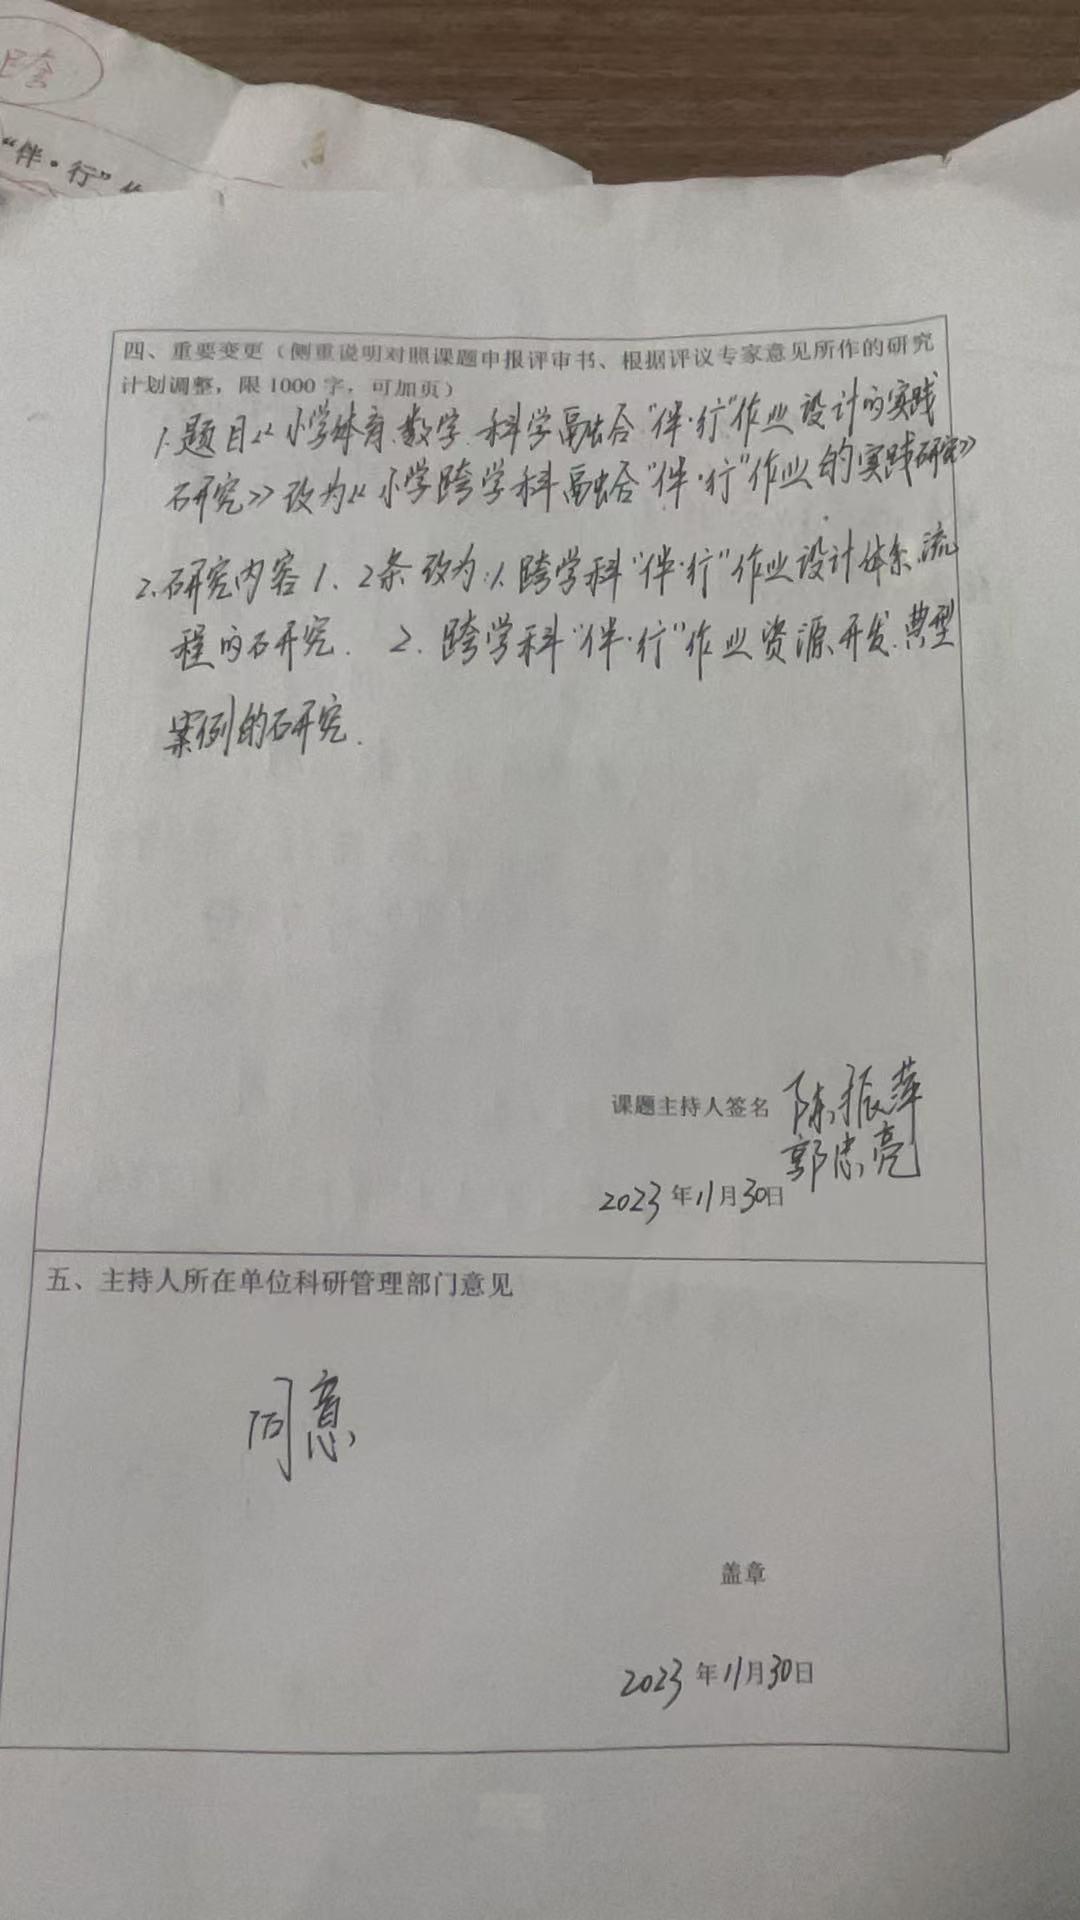 “伴·行”作
四、重要变更（侧重说明对照课题申报评审书、根据评议专家意见所作的研究
计划调整，限1000字，可加页）
1.题目《小学体育、数学、科学融合“伴·行”作业设计的实践
研究》改为《小学跨学科融合“伴·行”作业的实践研究》
2.研究内容1、2条改为:1.跨学科“伴·行”作业设计体系、流
程的研究. 2.跨学科“伴·行”作业资源开发、典型
案例的研究.
课题主持人签名 陈振萍
郭忠亮
2023年11月30日
五、主持人所在单位科研管理部门意见
同意
盖章
2023年11月30日